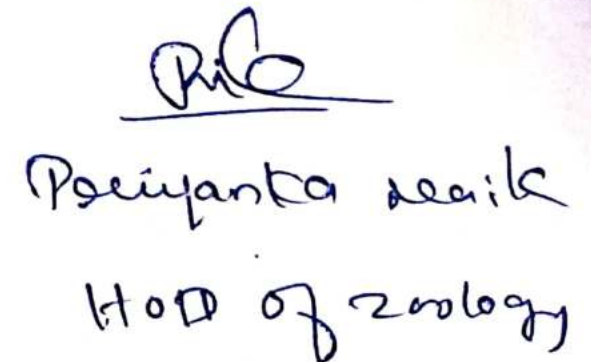 Priyanka Naik
HOD of zoology